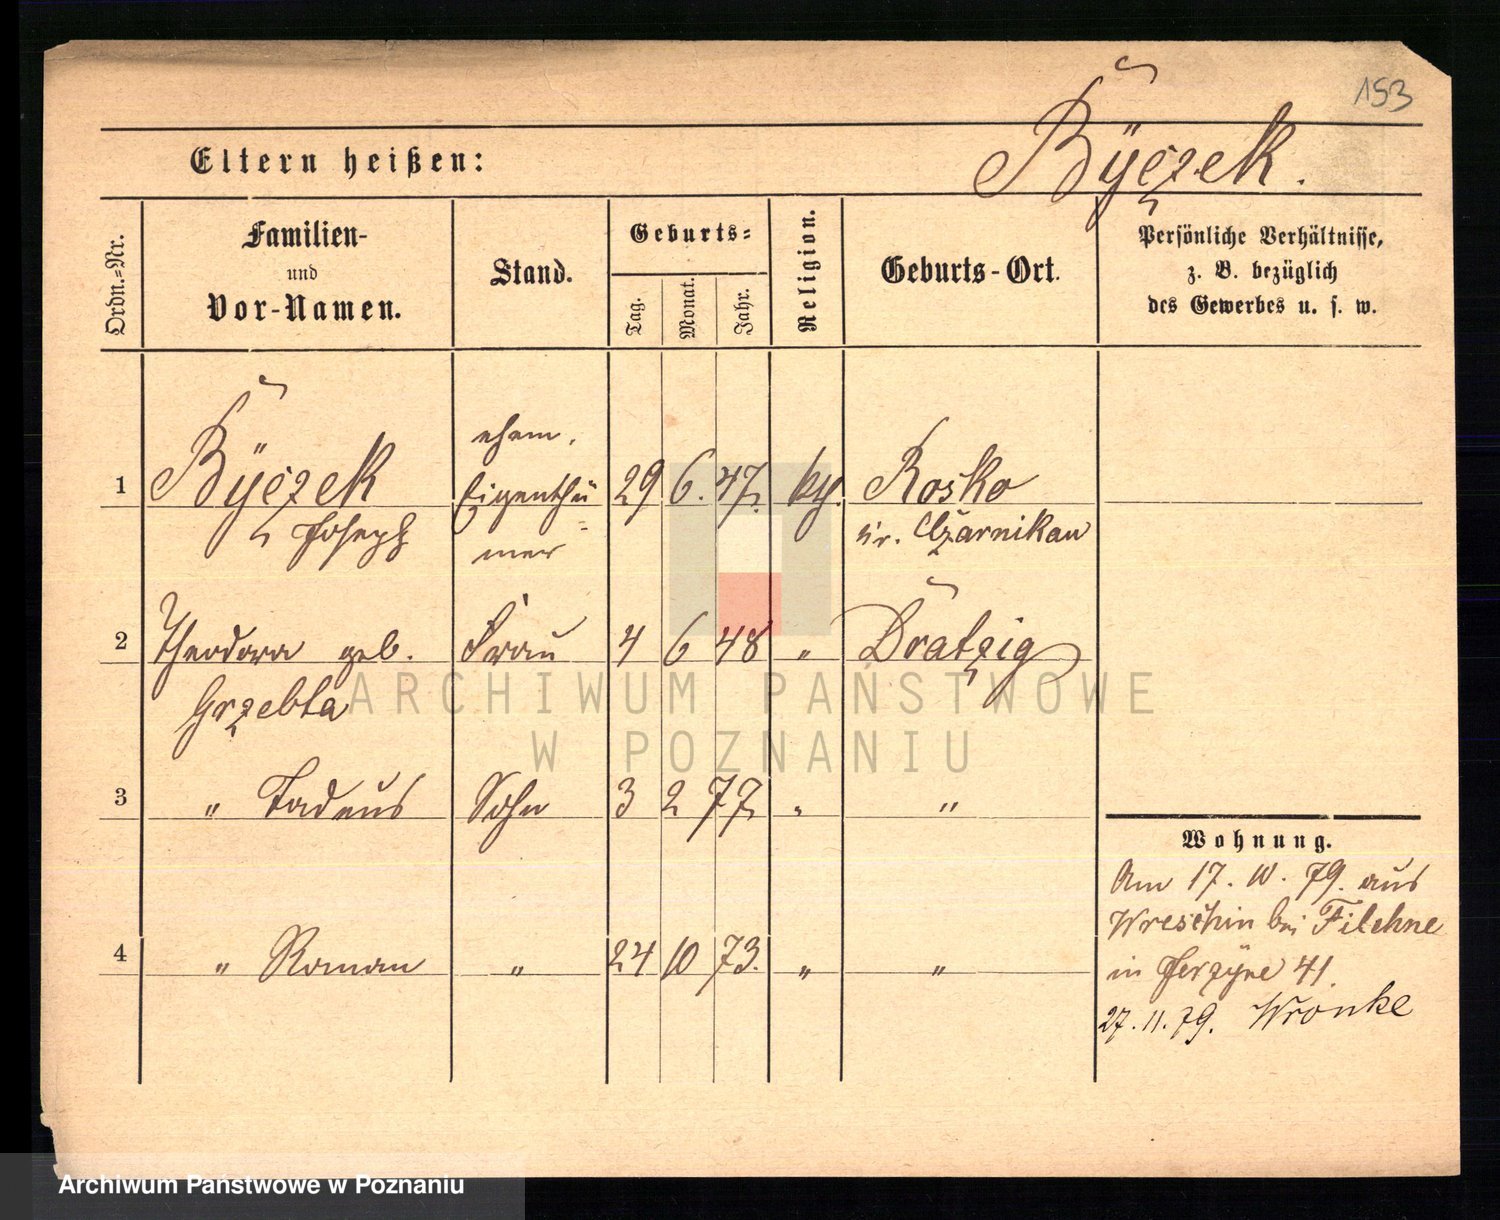 153
Byczek.
Eltern heißen:
Ordn.=Nr.
Familien-
und
Vor-Namen.
Stand.
Geburts=
Tag.
Monat.
Jahr.
Religion.
Geburts-Ort.
Persönliche Verhältnisse,
z. B. bezüglich
des Gewerbes u. s. w.
1 Byczek
Joseph
ehem.
Eigenthü
=
mer
29 6. 47.
Rosko
Kr. Czarnikau
2 Theodora geb. Frau 4 6 48 " Dratzig
Grzebta
3 " Tadeus Sohn 3 2 77 " "
4 " Roman " 24 10 73. " "
Wohnung.
Am 17. 10. 79. aus
Wreschin bei Filehne
in 41.
27. 11. 79. Wronke
ARCHIWUM PAŃSTWOWE
W POZNANIU
Archiwum Państwowe w Poznaniu